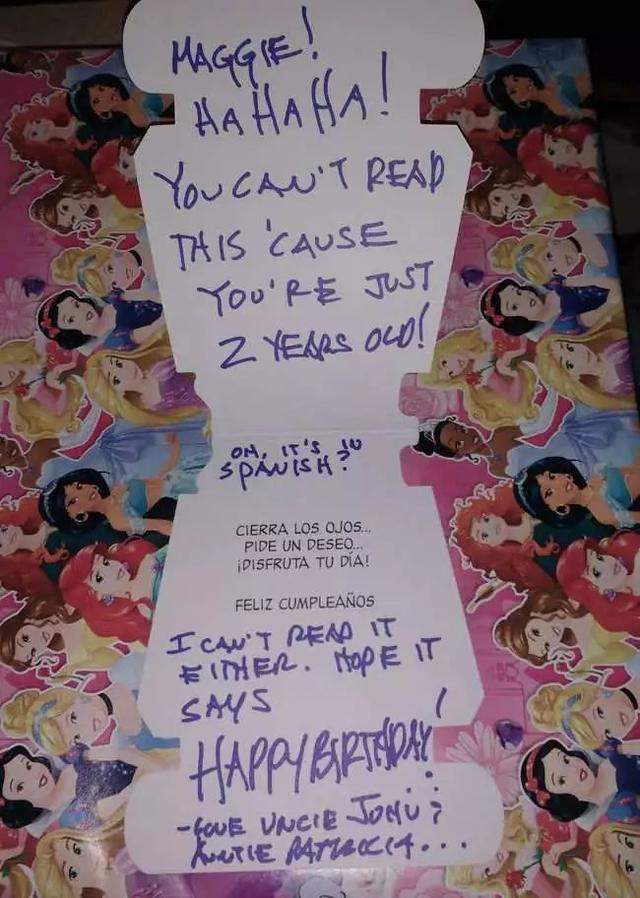 MAGGIE!
HAHAHA!
YOU CAN'T READ
THIS 'CAUSE
YOU'RE JUST
2 YEARS OLD!
OH, IT'S IN
SPANISH?
CIERRA LOS OJOS...
PIDE UN DESEO...
¡DISFRUTA TU DÍA!
FELIZ CUMPLEAÑOS
I CAN'T READ IT
EITHER. HOPE IT
SAYS
HAPPY BIRTHDAY!
-LOVE UNCLE JOHN
AUNTIE PATRICIA...